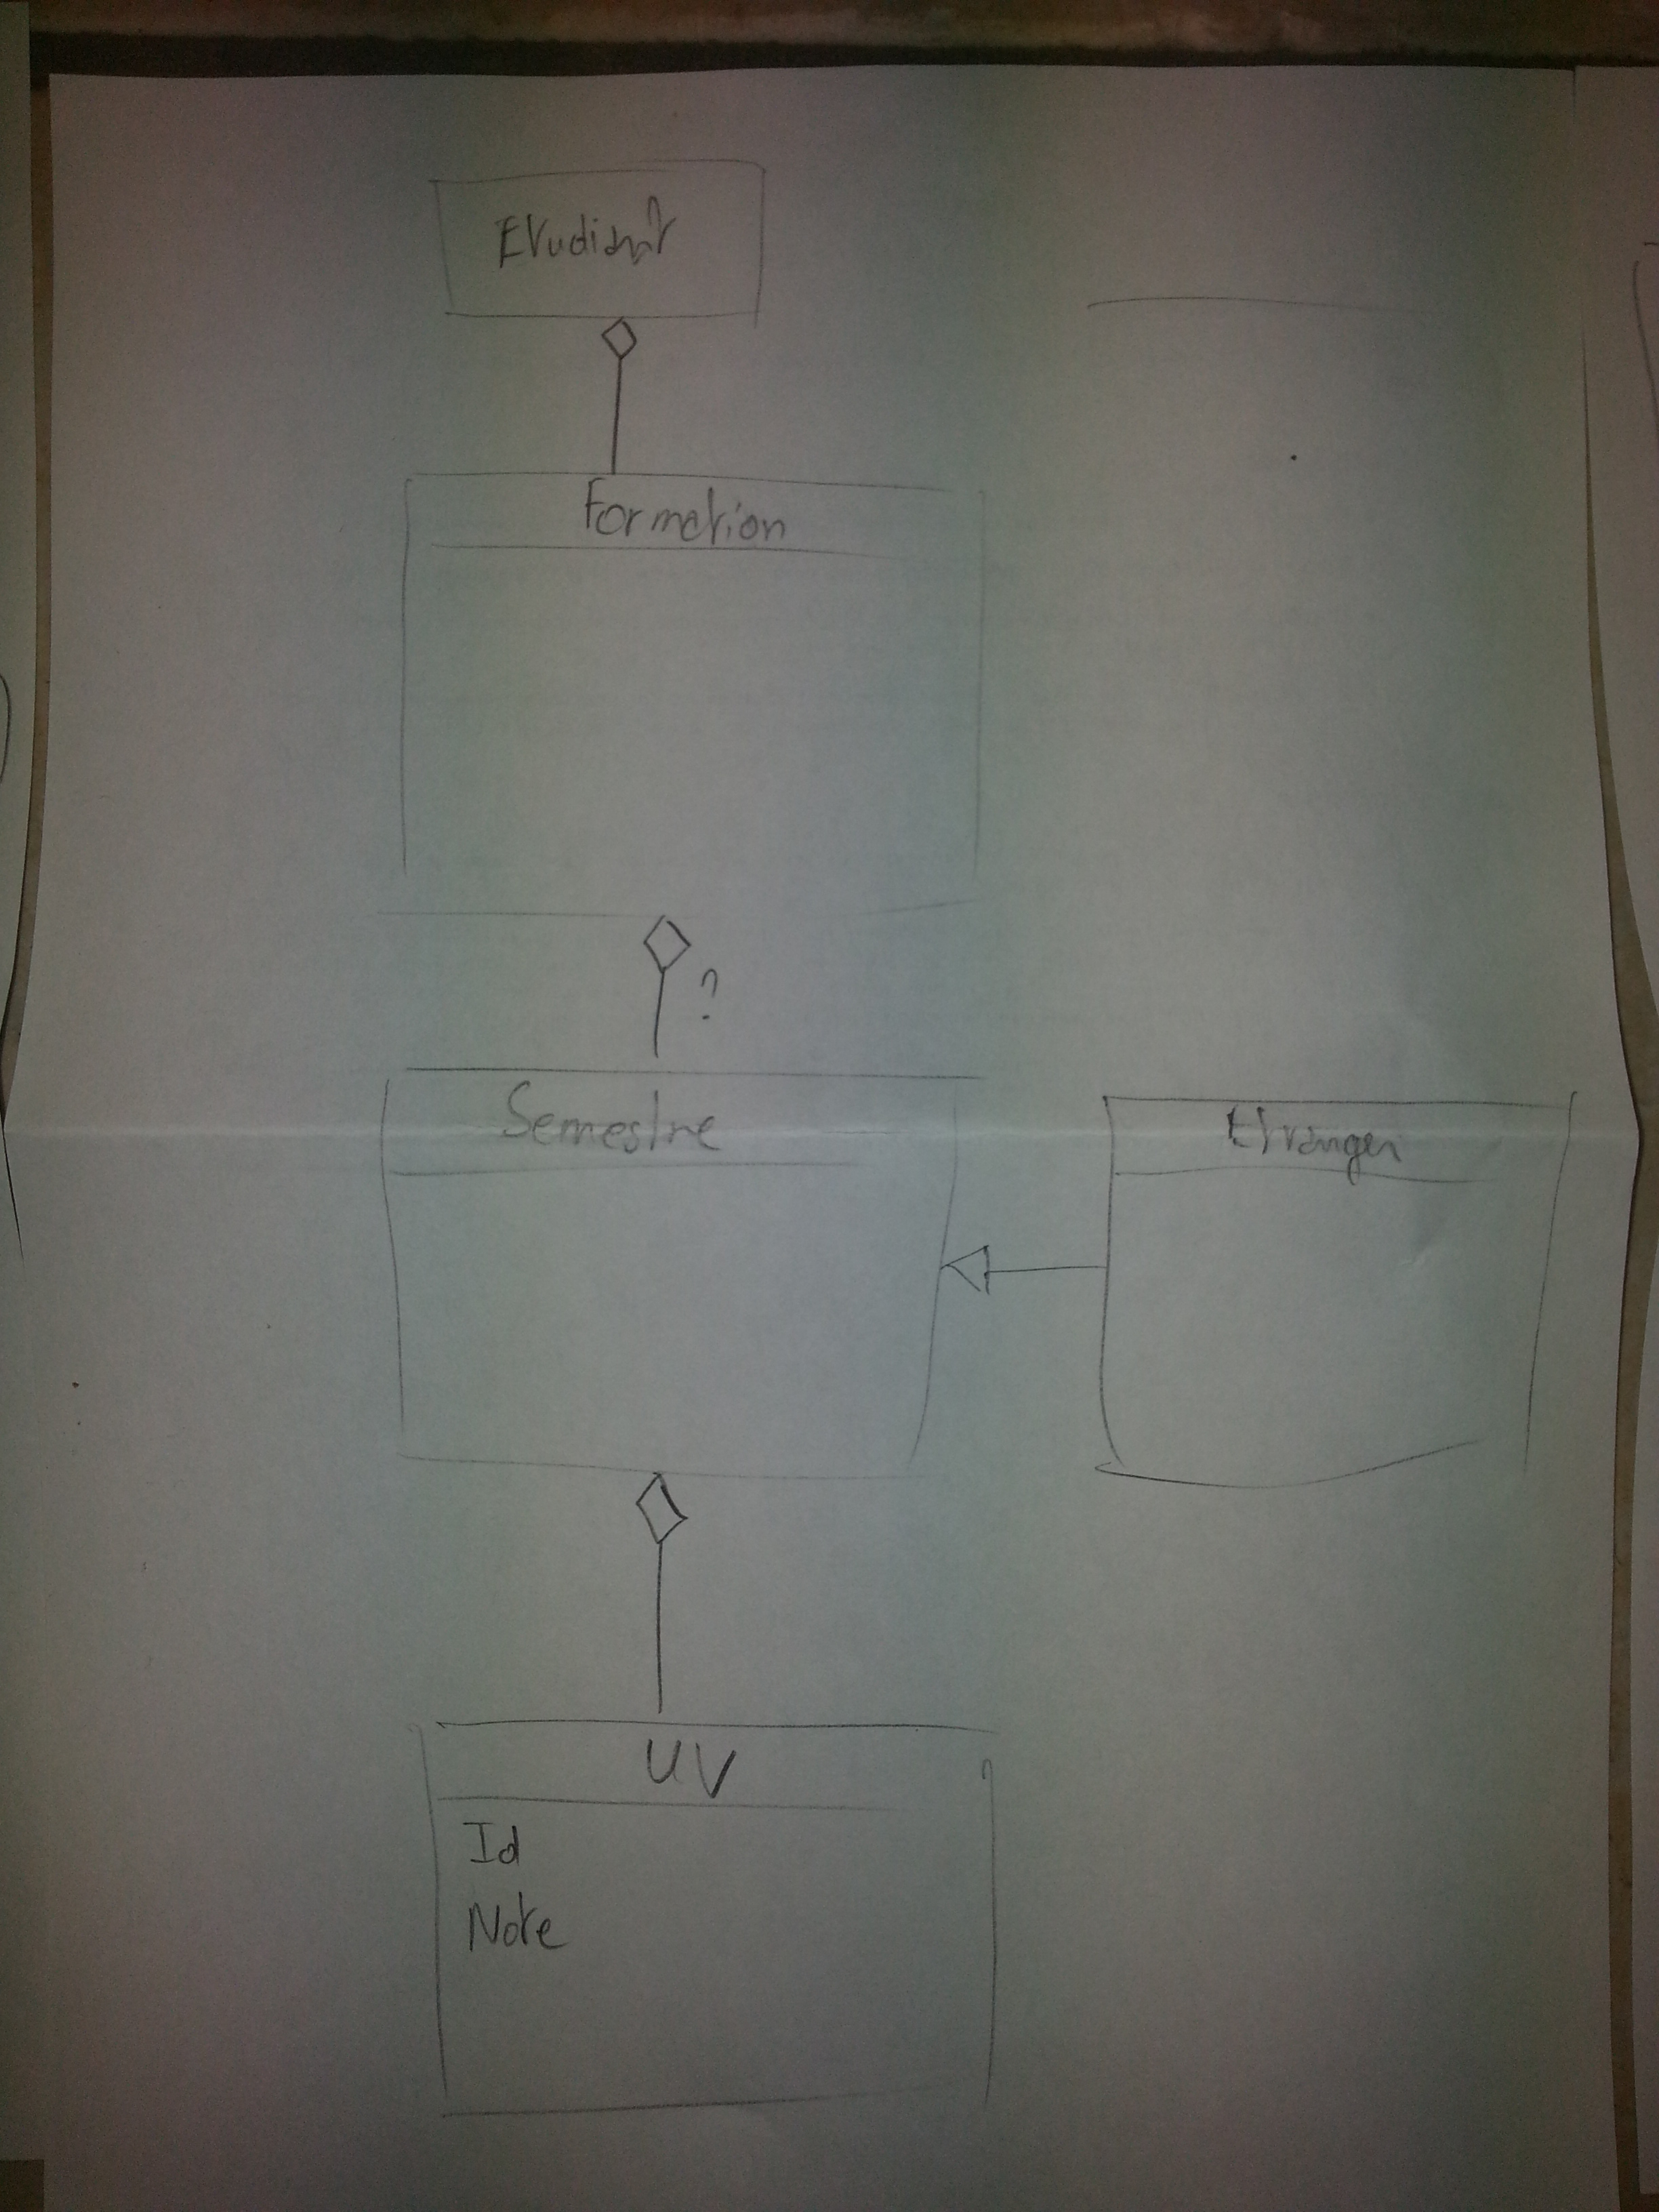 Etudiant
Formation
?
Semestre
Etranger
UV
Id
Note